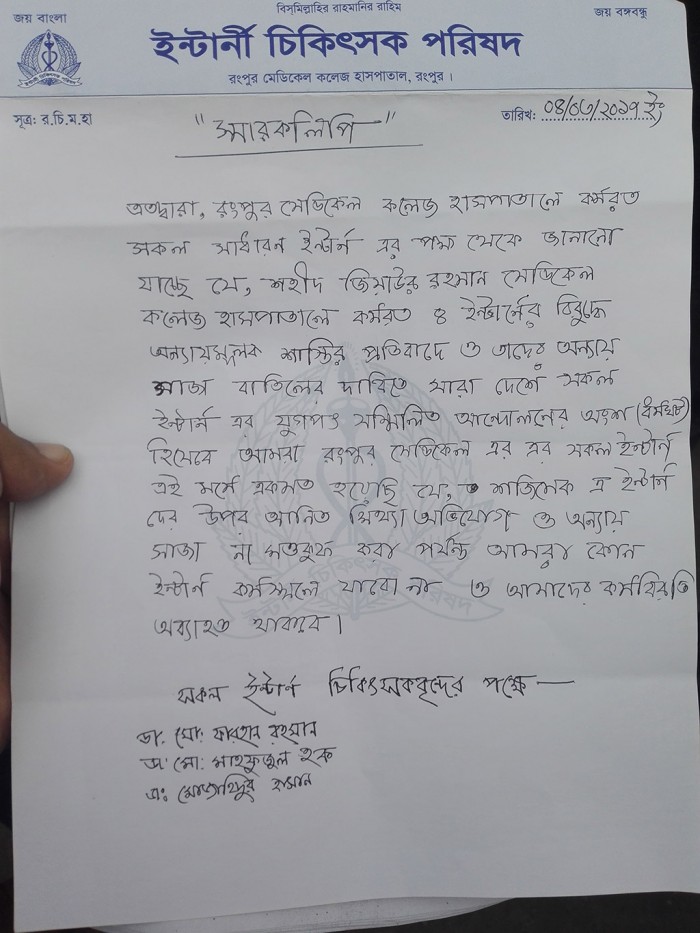 বিসমিল্লাহির রাহমানির রাহিম
জয় বাংলা
জয় বঙ্গবন্ধু
ইন্টার্নী চিকিৎসক পরিষদ
রংপুর মেডিকেল কলেজ হাসপাতাল, রংপুর।
সূত্র: র.চি.ম.হা
"স্মারকলিপি"
তারিখ: ০৪/০৩/২০১৭ ইং
এতদ্বারা, রংপুর মেডিকেল কলেজ হাসপাতালে কর্মরত
সকল সাধারন ইন্টার্ন এর পক্ষ থেকে জানানো
যাচ্ছে যে, শহীদ জিয়াউর রহমান মেডিকেল
কলেজ হাসপাতালে কর্মরত ৪ ইন্টার্নের বিরুদ্ধে
অন্যায়মূলক শাস্তির প্রতিবাদে ও তাদের অন্যায়
সাজা বাতিলের দাবিতে সারা দেশে সকল
ইন্টার্ন এর যুগপৎ সম্মিলিত আন্দোলনের অংশ (ধর্মঘট)
হিসেবে আমরা রংপুর মেডিকেল এর এর সকল ইন্টার্ন
এই মর্মে একমত হয়েছি যে, শজিমেক এ ইন্টার্ন
দের উপর আনিত মিথ্যা অভিযোগ ও অন্যায়
সাজা না মওকুফ করা পর্যন্ত আমরা কোন
ইন্টার্ন কর্মস্থলে যাবো না ও আমাদের কর্মবিরতি
অব্যাহত থাকবে।
সকল ইন্টার্ন চিকিৎসকবৃন্দের পক্ষে —
ডা: মো: ফারহান রহমান
ডা: মো: মাহফুজুল হক
ডা: মোজাহিদুর হাসান
ইন্টার্নী চিকিৎসক পরিষদ